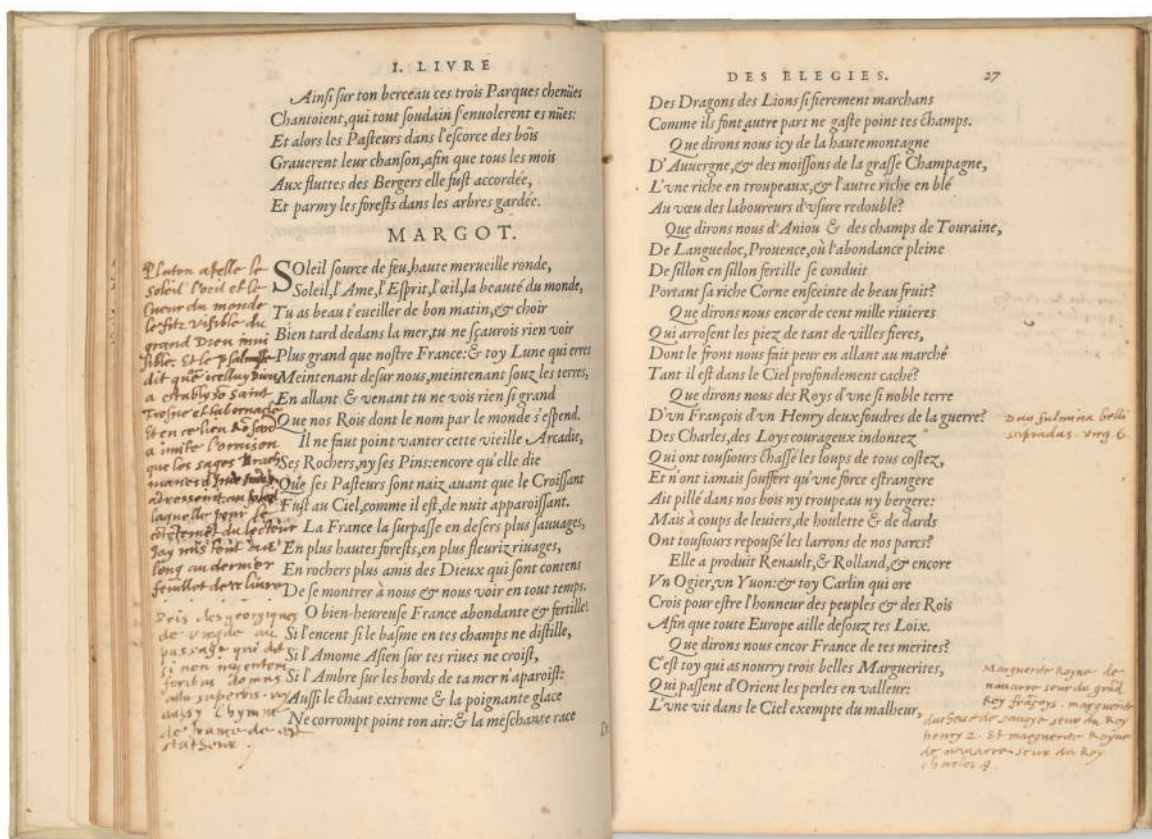 I. LIVRE
Ainsi sur ton berceau ces trois Parques chenües
Chantoient, qui tout soudain s'enuolerent es nües:
Et alors les Pasteurs dans l'escorce des bois
Grauerent leur chanson, afin que tous les mois
Aux fluttes des Bergers elle fust accordée,
Et parmy les forests dans les arbres gardée.
MARGOT.
SOleil source de feu, haute merueille ronde,
Soleil, l'Ame, l'Esprit, l'œil, la beauté du monde,
Tu as beau t'eueiller de bon matin, & choir
Bien tard dedans la mer, tu ne sçaurois rien voir
Plus grand que nostre France: & toy Lune qui erres
Meintenant desur nous, meintenant souz les terres,
En allant & venant tu ne vois rien si grand
Que nos Rois dont le nom par le monde s'espend.
Il ne faut point vanter cette vieille Arcadie,
Ses Rochers, ny ses Pins: encore qu'elle die
Que ses Pasteurs sont naiz auant que le Croissant
Fust au Ciel, comme il est, de nuit apparoissant.
La France la surpasse en desers plus sauuages,
En plus hautes forests, en plus fleuriz riuages,
En rochers plus amis des Dieux qui sont contens
De se montrer à nous & nous voir en tout temps.
O bien-heureuse France abondante & fertille!
Si l'encent si le basme en tes champs ne distille,
Si l'Amome Asien sur tes riues ne croist,
Si l'Ambre sur les bords de ta mer n'aparoist:
Aussi le chaut extreme & la poignante glace
Ne corrompt point ton air: & la meschante race
Platon apelle le
soleil l'oeil et le
cueur du monde
le filz visible du
grand Dieu inui
sible. Et le psalmiste
dit que icelluy Dieu
a estably so saint
Trosne et tabernacle
Et en ce lieu
a imité l'oraison
que les sages Brach
manes
adressent au soleil
laquelle pour le
cõtẽtemẽt du lecteur
Jay mis tout au
long au dernier
feuillet de ce liure
des georgiques
de au
passage qui dit
si non ingentem
foribus domus
alta superbis. voy
aussy l'hymne
de france de
DES ELEGIES. 27
Des Dragons des Lions si fierement marchans
Comme ils font autre part ne gaste point tes champs.
Que dirons nous icy de la haute montagne
D'Auuergne, & des moissons de la grasse Champagne,
L'vne riche en troupeaux, & l'autre riche en blé
Au vœu des laboureurs d'vsure redoublé?
Que dirons nous d'Aniou & des champs de Touraine,
De Languedoc, Prouence, où l'abondance pleine
De sillon en sillon fertille se conduit
Portant sa riche Corne enseinte de beau fruit?
Que dirons nous encor de cent mille riuieres
Qui arrosent les piez de tant de villes fieres,
Dont le front nous fait peur en allant au marché
Tant il est dans le Ciel profondement caché?
Que dirons nous des Roys d'vne si noble terre
D'vn François d'vn Henry deux foudres de la guerre?
Des Charles, des Loys courageux indontez
Qui ont tousiours chassé les loups de tous costez,
Et n'ont iamais souffert qu'vne force estrangere
Ait pillé dans nos bois ny troupeau ny bergere:
Mais à coups de leuiers, de houlette & de dards
Ont tousiours repoussé les larrons de nos parcs?
Elle a produit Renault, & Rolland, & encore
Vn Ogier, vn Yuon: & toy Carlin qui ore
Crois pour estre l'honneur des peuples & des Rois
Afin que toute Europe aille desouz tes Loix.
Que dirons nous encor France de tes merites?
C'est toy qui as nourry trois belles Marguerites,
Qui passent d'Orient les perles en valleur:
L'vne vit dans le Ciel exempte du malheur,
Duo fulmina belli
scipiadas. virg. 6.
Marguerite Royne de
nauarre seur du grãd
Roy frãçoys. marguerite
duchesse de sauoye seur du Roy
henry 2. Et marguerite Royne
de nauarre seur du Roy
charles 9.